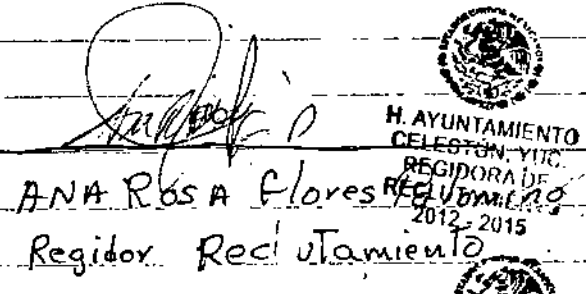 H. AYUNTAMIENTO
CELESTÚN, YUC.
REGIDORA DE
2012 - 2015
ANA ROSA Flores
Regidor Reclutamiento